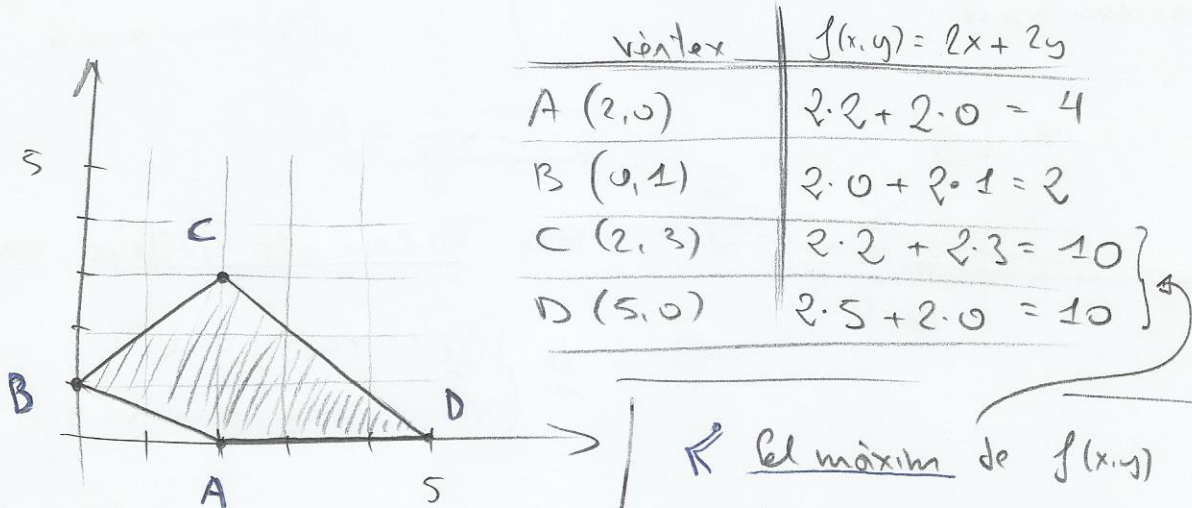 vèrtex f(x,y) = 2x + 2y
A (2,0) 2·2 + 2·0 = 4
B (0,1) 2·0 + 2·1 = 2
C (2,3) 2·2 + 2·3 = 10
D (5,0) 2·5 + 2·0 = 10
5
C
B
D
A
5
El màxim de f(x,y)